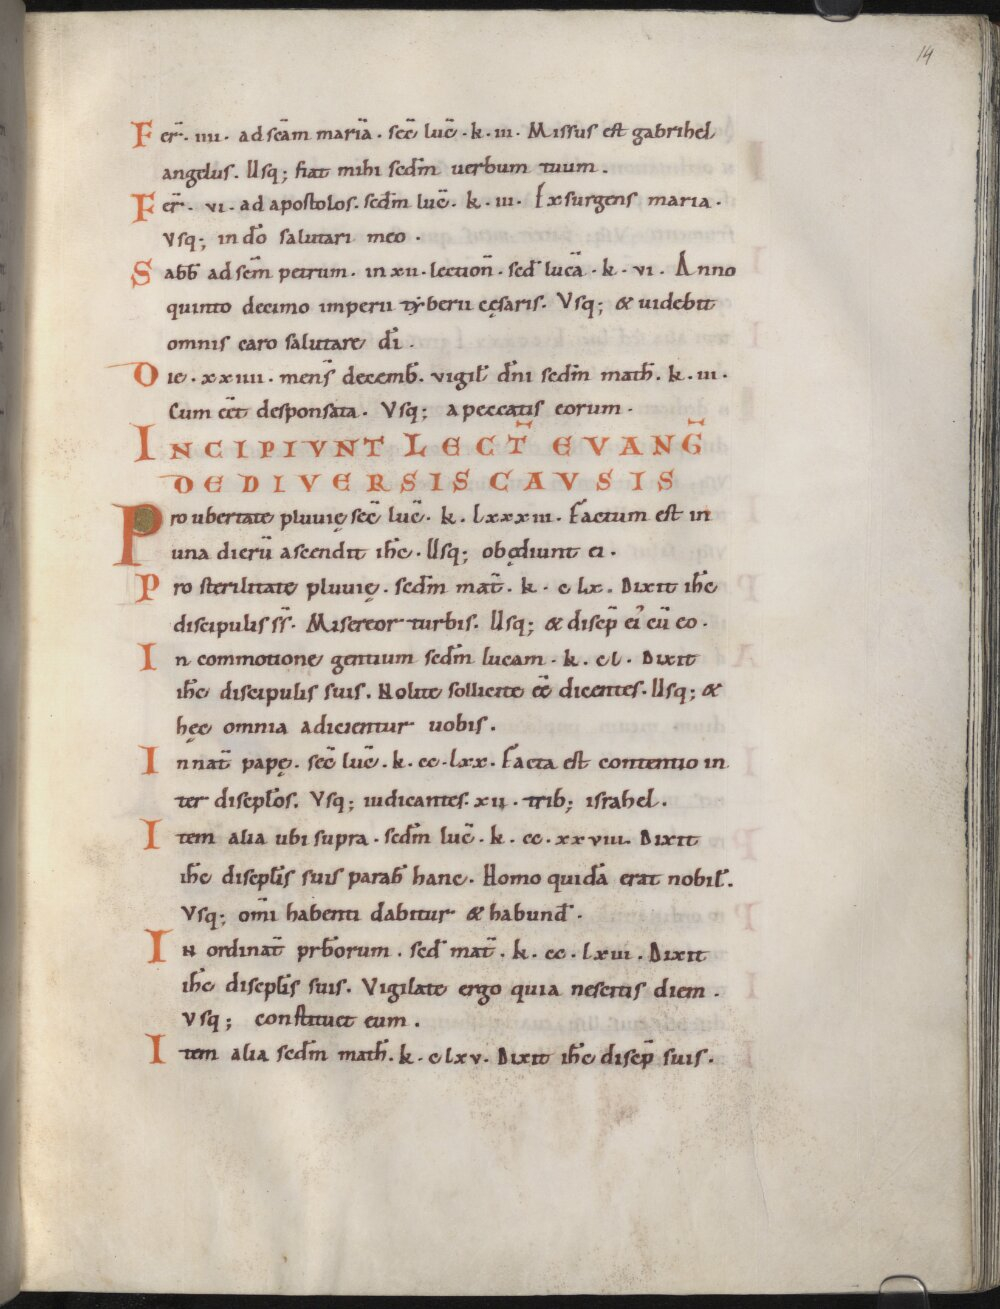 14
Fer̄· iiii· ad scām mariā· sec̄ luc̄·k·iii· Missus est gabrihel
angelus. Usq; fiat mihi scdm̄ uerbum tuum.
Fer̄· vi· ad apostolos· scdm̄ luc̄· k· iii· Exsurgens maria·
Vsq; in dō salutari meo·
Sabb̄ ad scm̄ petrum· in xii· lection̄· scd̄ lucā·k·vi· Anno
quinto decimo imperii tẏberii cęsaris. Vsq; & uidebit
omnis caro salutare dī·
Die·xxiiii· mens̄ decemb̄. vigil̄ dn̄i scdm̄ math̄. k·iii·
Cum eēt desponsata· Vsq; a peccatis eorum·
INCIPIVNT LECT̄ EVANḠ
DE DIVERSIS CAVSIS
Pro ubertate pluuię sec̄ luc̄· k· lxxxiii· Factum est in
una dierū ascendit ih̄c·Usq; obędiunt ei·
Pro sterilitate pluuię· scdm̄ mat̄· k· c lx· Dixit ih̄c
discipulis ss̄· Misereor turbis. Usq; & discip̄ ei᾽ cū eo·
In commotione gentium scdm̄ lucam·k·cl· Dixit
ih̄c discipulis suis. Nolite solliciti eē dicentes·Usq; &
hęc omnia adicientur uobis.
In nat̄ papę· sec̄ luc̄·k·cc·lxx· Facta est contentio in
ter discipl̄os. Vsq; iudicantes·xii·trib; israhel.
Item alia ubi supra·scdm̄ luc̄·k·cc·xxviii· Dixit
ih̄c discipl̄is suis parab̄ hanc· Homo quidā erat nobil̄.
Vsq; om̄i habenti dabitur & habund̄·
IN ordinat̄ prb̄rorum·scd̄ mat̄·k·cc·lxvi·Dixit
ih̄c discipl̄is suis· Vigilate ergo quia nescitis diem·
Vsq; constituet eum.
Item alia scdm̄ math̄·k·clxv·Dixit ih̄c discip̄ suis·